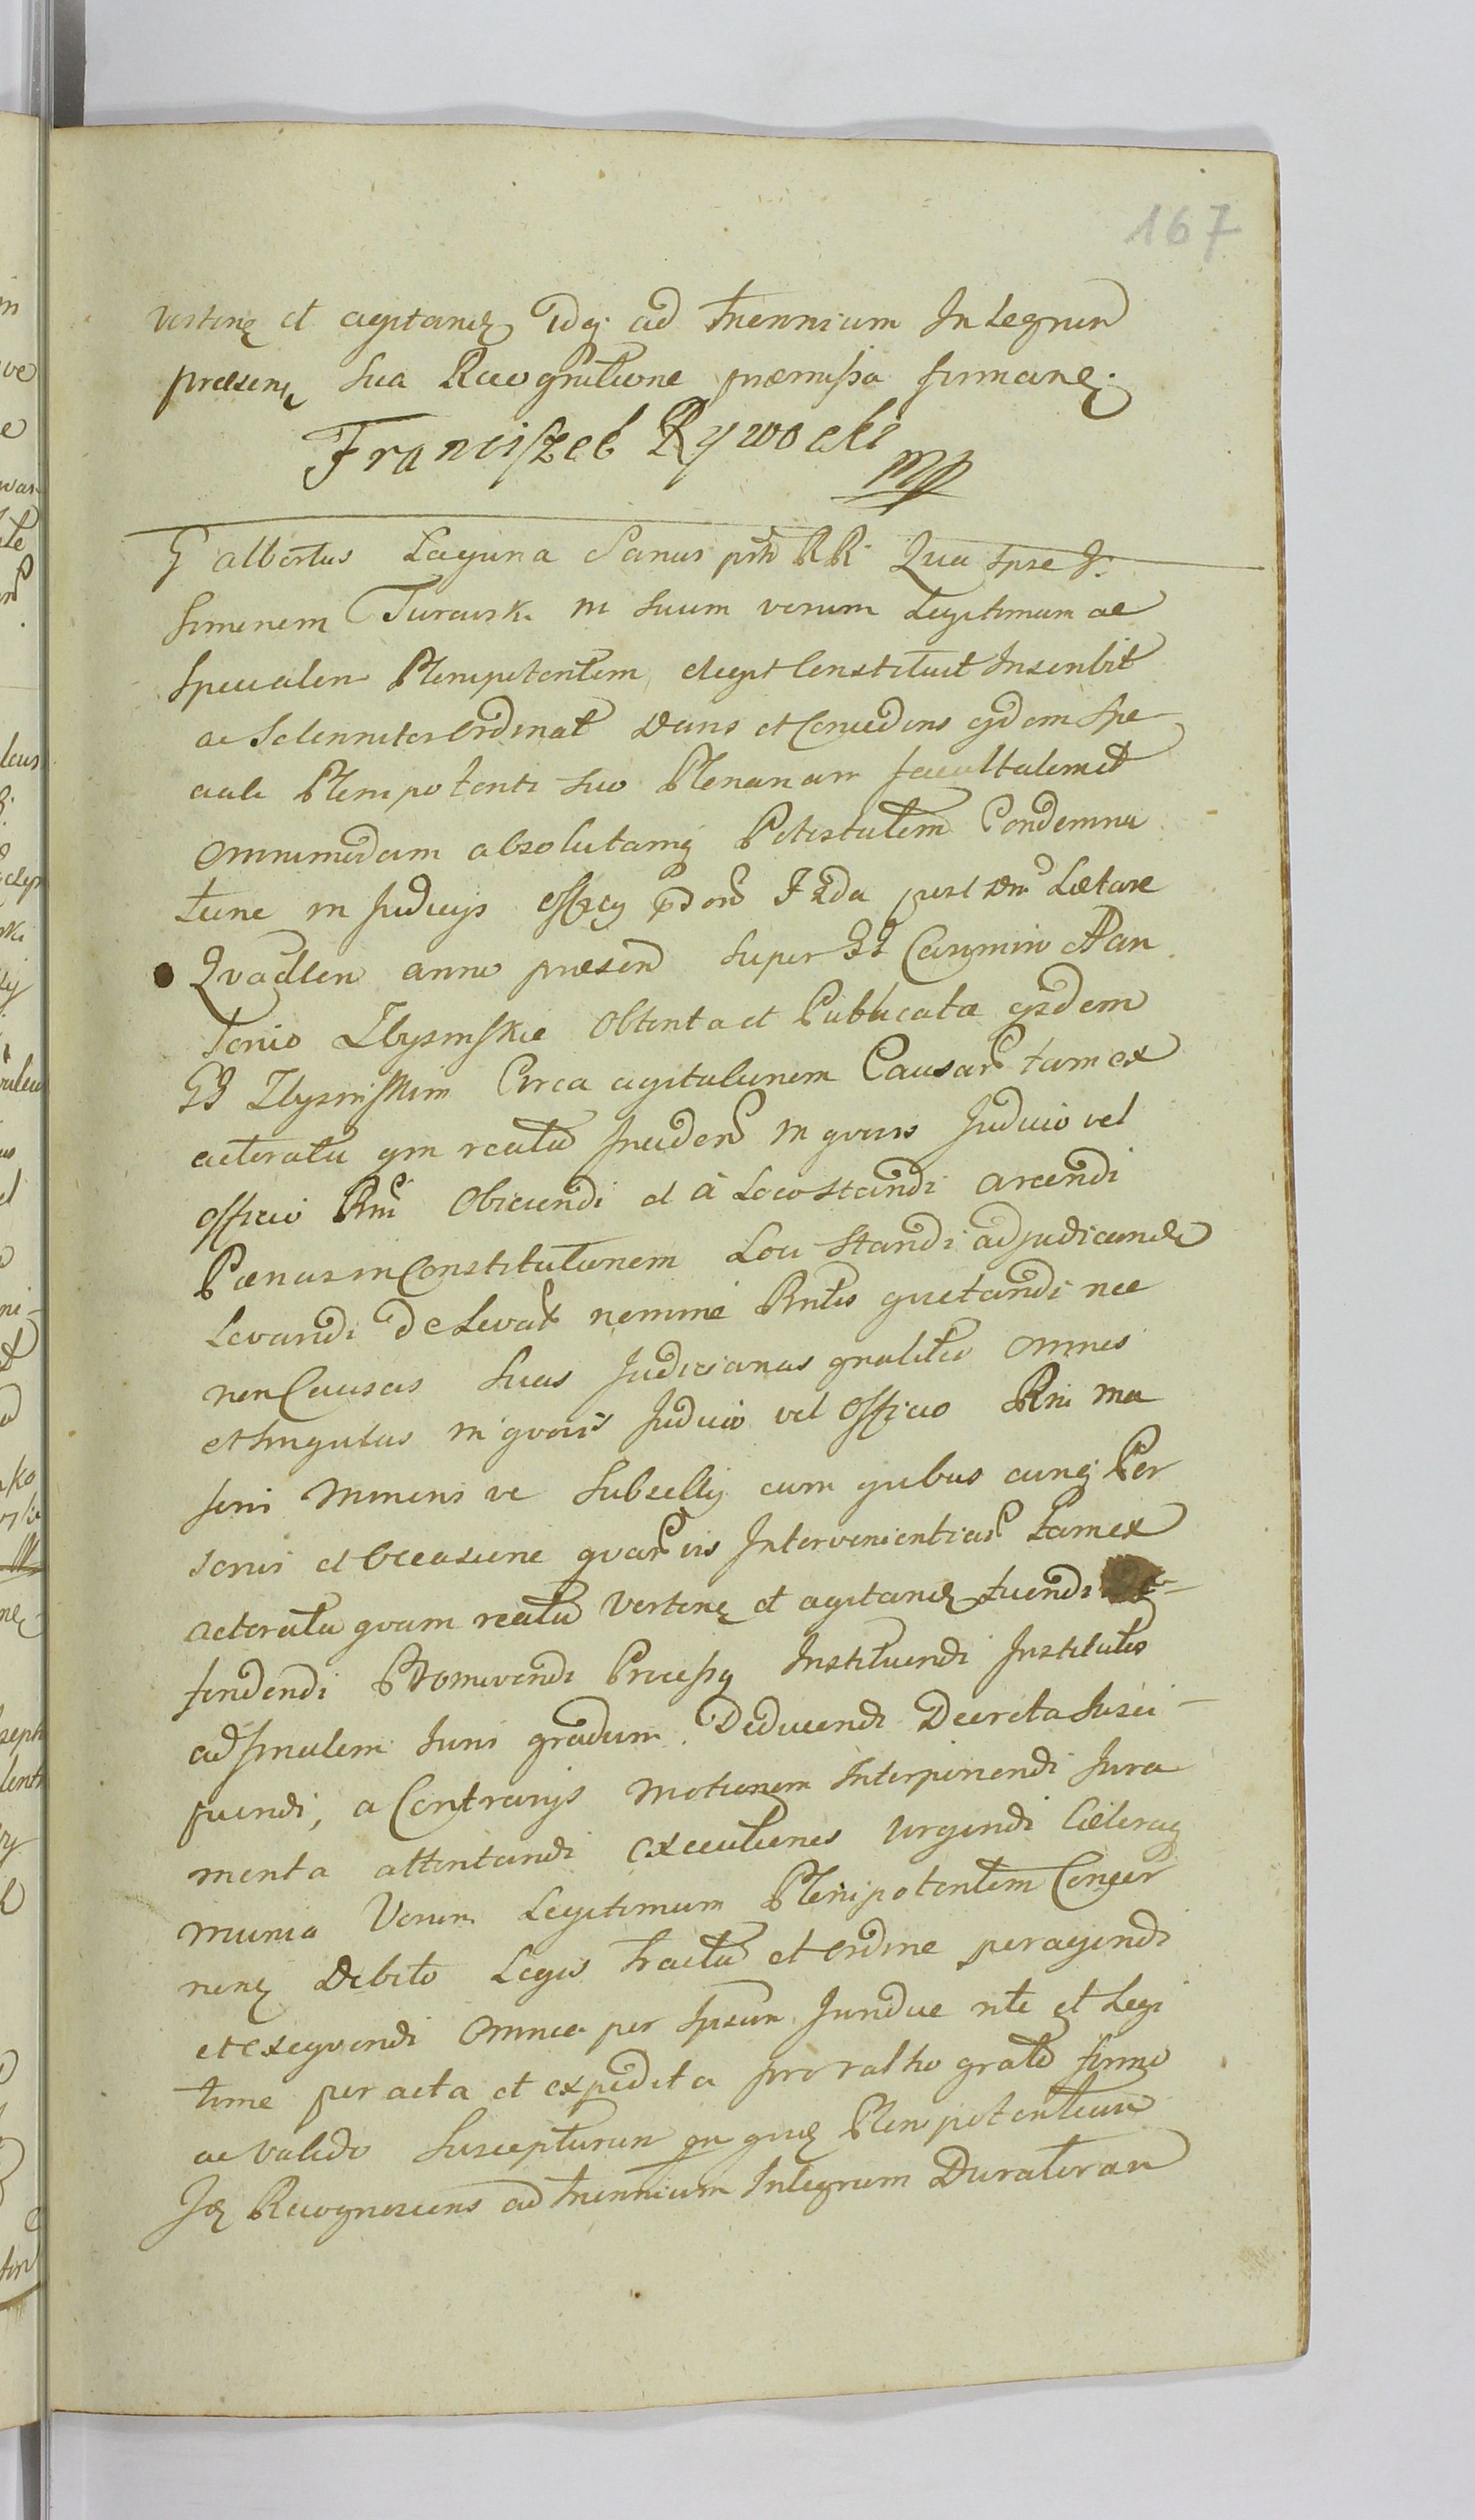 167
vertenꝫ et agitanꝫ idq; ad triennium Integrum
præsenꝫ sua Recognitione præmissa firmanꝫ.
Franciszek Rywocki
mp
G albertus Laguna Sanus RR Qua ipse G:
Simonem Turcisk. in suum verum Legitimum ac
specialem Plenipotentem elegit Constituit Inscribit
ac Solenniter Ordinat Dans et Concedens ejdem Spe
ciali Plenipotenti suo Plenariam facultatem et
omnimodam absolutamq; Potestatem Condemna
tione in Judicijs Officij post Lætare
Qvadlen anno præsen super GG Casimiro An
tonio Zbysinskie Obtenta et Publicata ejsdem
GG Zbysinskim Circa agitationem Causar tam ex
actoratu qm reatu Inciden in qvovis Judicio vel
Officio Rni Obiciendi et à Loco standi arcendi
Pænas in Constitutionem Loci standi adjudicandi
Levandi de Levat nomine Rntis quietandi nec
non Causas suas Judiciarias gnaliter omnes
et singulas in qvovis Judicio vel Officio Rni ma
joris minoris ve Subsellij cum qvibus cunq; Per
sonis et Occasione qvar vis Intervenientiar tam ex
actoratu qvam reatu Vertenꝫ et agitanꝫ tuendi De-
fendendi Promovendi Processq Instituendi Institutis
ad finalem Juris gradum Deducendi Decreta Susci-
piendi, a Contrarijs motionem Interponendi Jura
menta attentandi executiones urgendi Cæteraq
munia Verum Legitimum Plenipotentem Concer
nenꝫ Debito Legis tractu et Ordine peragendi
et exeqvendi Omnia per Ipsum Juridice rite et Legi
time peracta et expedita pro ratho grato firmo
ac valido Suscepturum qm quidꝫ Plenipotentiam
Idꝫ Recognoscens ad triennium Integrum Duraturam